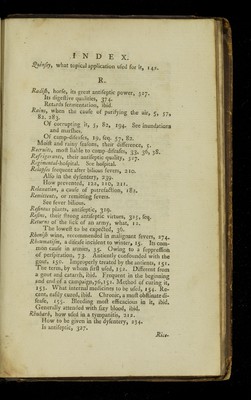 INDEX.
Quinsey, what topical application used for it, 142.
R.
Radish, horse, its great antiseptic power, 327.
Its digestive qualities, 374.
Retards fermentation, ibid.
Rains, when the cause of purifying the air, 5, 57,
82, 283.
Of corrupting it, 5, 82, 194. See inundations
and marshes.
Of camp-diseases, 19, seq. 57, 82.
Moist and rainy seasons, their difference, 5.
Recruits, most liable to camp-diseases, 33, 36, 38.
Refrigerants, their antiseptic quality, 317.
Regimental-hospital. See hospital.
Relapses frequent after bilious fevers, 210.
Also in the dysentery, 239.
How prevented, 122, 210, 212.
Relaxation, a cause of putrefaction, 182.
Remittents, or remitting fevers.
See fever bilious.
Resinous plants, antiseptic, 319.
Resins, their strong antiseptic virtues, 315, seq.
Returns of the sick of an army, what, 12.
The lowest to be expected, 36.
Rhenish wine, recommended in malignant fevers, 274.
Rheumatism, a disease incident to winter, 15. Its com-
mon cause in armies, 15. Owing to a suppression
of perspiration, 73. Antiently confounded with the
gout, 150. Improperly treated by the antients, 151.
The term, by whom first used, 152. Different from
a gout and catarrh, ibid. Frequent in the beginning
and end of a campaign, 76, 152. Method of curing it,
153. What internal medicines to be used, 154. Re-
cent, easily cured, ibid. Chronic, a most obstinate di-
sease, 155. Bleeding most efficacious in it, ibid.
Generally attended with sizy blood, ibid.
Rhubarb, how used in a tympanitis, 211.
How to be given in the dysentery, 254.
Is antiseptic, 327.
Rice.